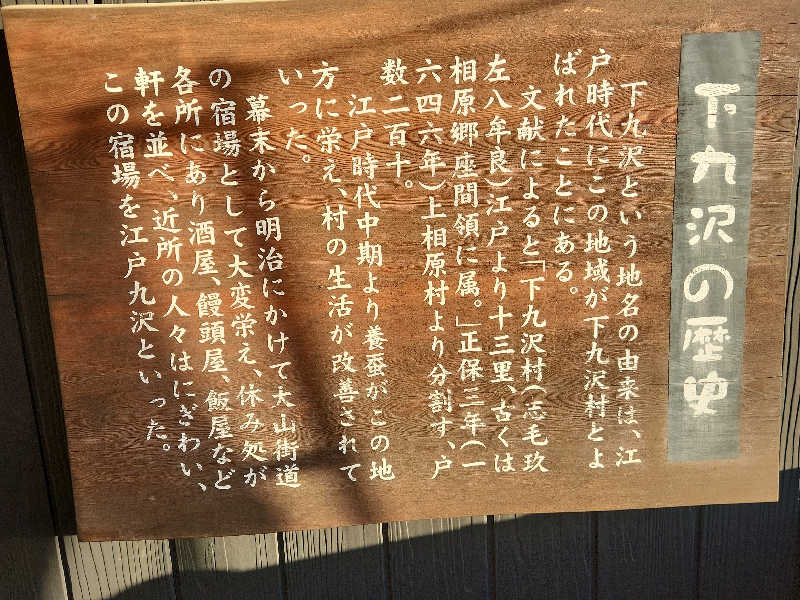 下九沢の歴史
下九沢という地名の由来は、江
戸時代にこの地域が下九沢村とよ
ばれたことにある。
文献によると「下九沢村(志毛玖
左八牟良)江戸より十三里、古くは
相原郷座間領に属。」正保三年(一
六四六年)上相原村より分割す、戸
数二百十。
江戸時代中期より養蚕がこの地
方に栄え、村の生活が改善されて
いった。
幕末から明治にかけて大山街道
の宿場として大変栄え、休み処が
各所にあり酒屋、饅頭屋、飯屋など
軒を並べ、近所の人々はにぎわい、
この宿場を江戸九沢といった。